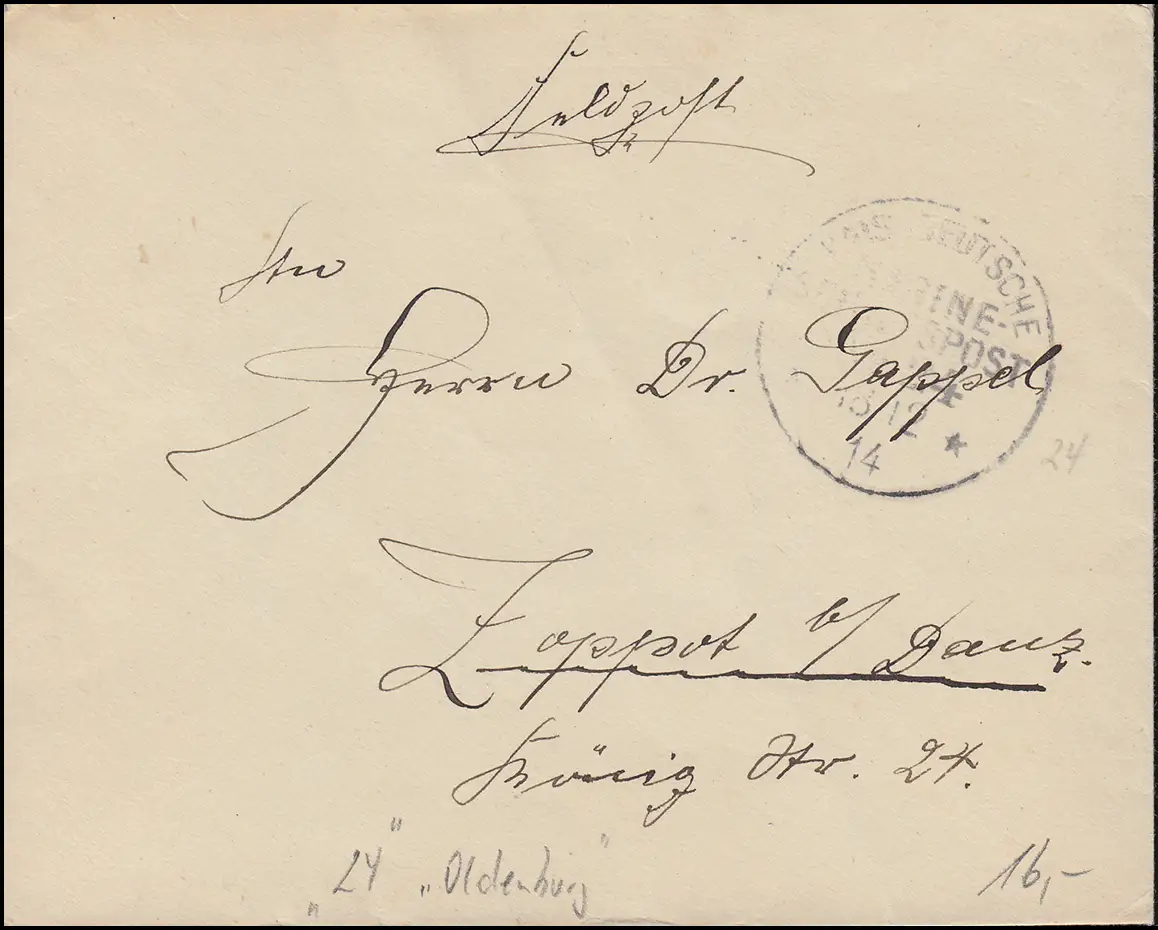 Feldpost
An
Herrn Dr. Gappel
KAIS. DEUTSCHE
MARINE-
SCHIFFSPOST
24
13 12
14
24
Zoppot b/ Danz.
König Str. 24.
"24" "Oldenburg"
16,-